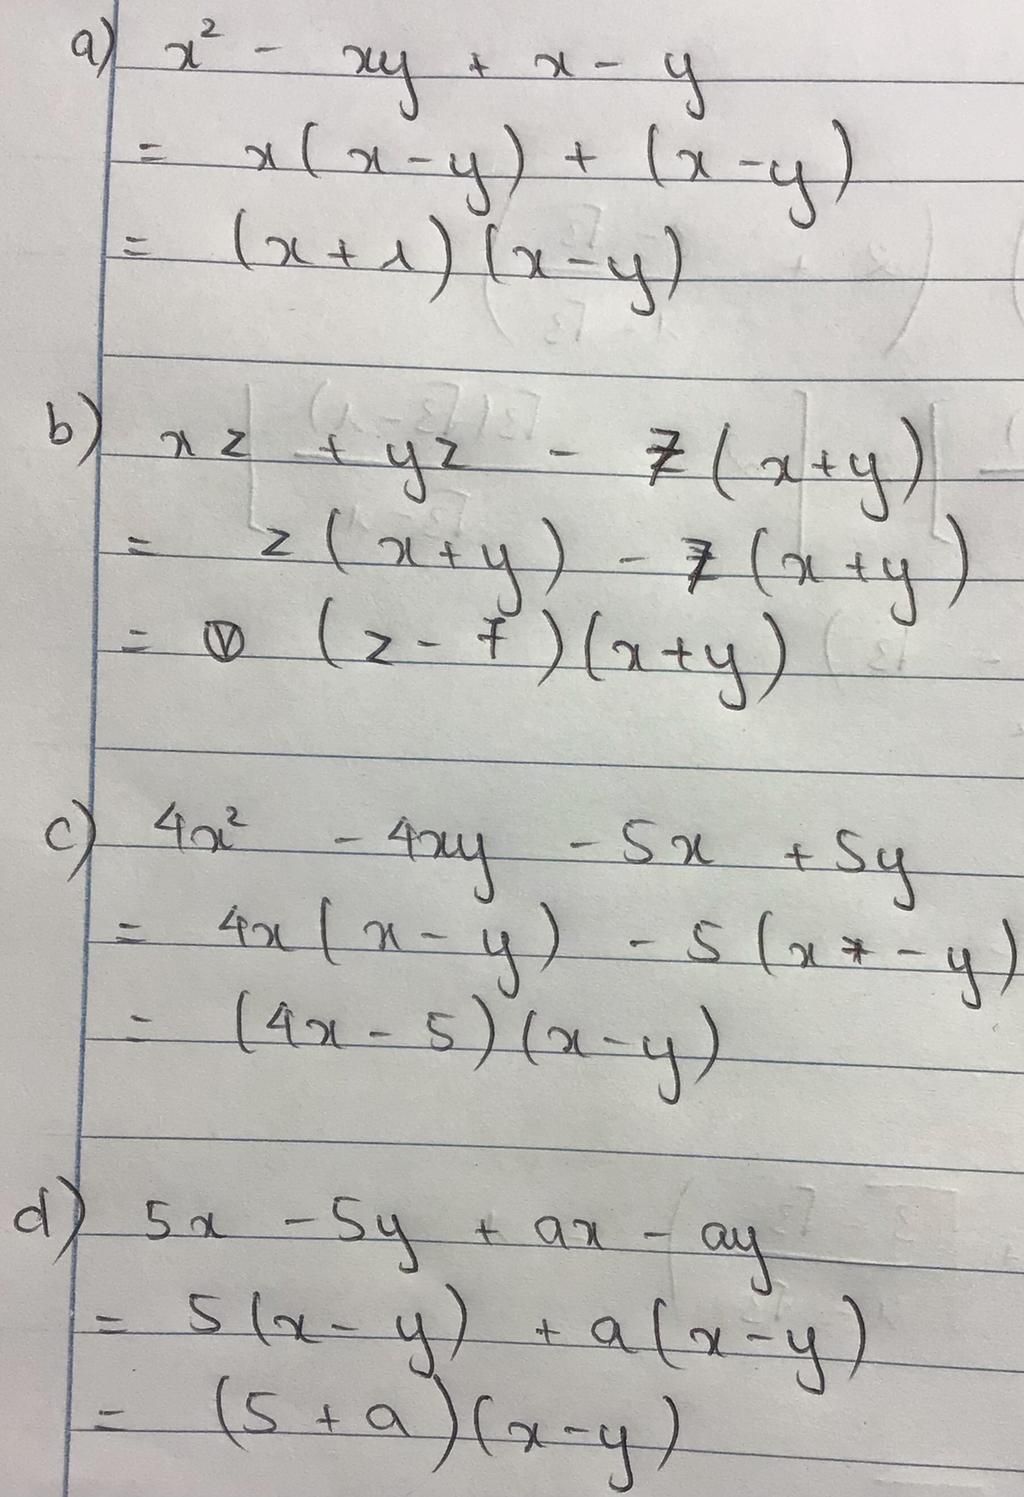 a) x² - xy + x - y
= x(x-y) + (x-y)
= (x+1)(x-y)
b) xz + yz - 7(x+y)
= z(x+y) - 7(x+y)
= (z-7)(x+y)
c) 4x² - 4xy - 5x + 5y
= 4x(x-y) - 5(x-y)
= (4x-5)(x-y)
d) 5x - 5y + ax - ay
= 5(x-y) + a(x-y)
= (5+a)(x-y)